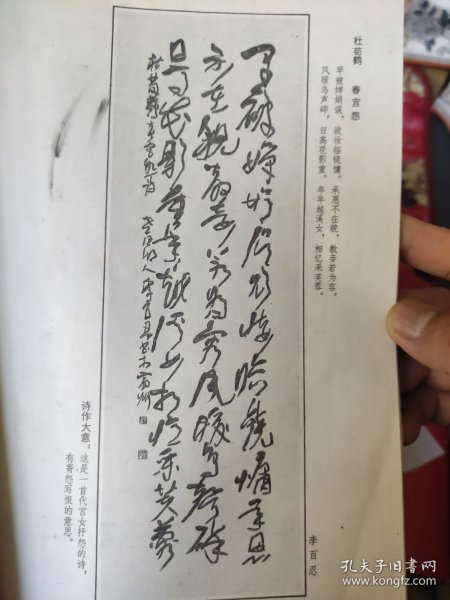 杜荀鹤　春宫怨
早被婵娟误，欲妆临镜慵。承恩不在貌，教妾若为容。
风暖鸟声碎，日高花影重。年年越溪女，相忆采芙蓉。
早被嬋娟误欲妆临鏡慵承恩
不在貌教妾若為容风暖鸟声碎
日高花影重年年越溪女相忆采芙蓉
李百忍
诗作大意：这是一首代宫女抒怨的诗，
有寄怨写恨的意思。
孔夫子旧书网